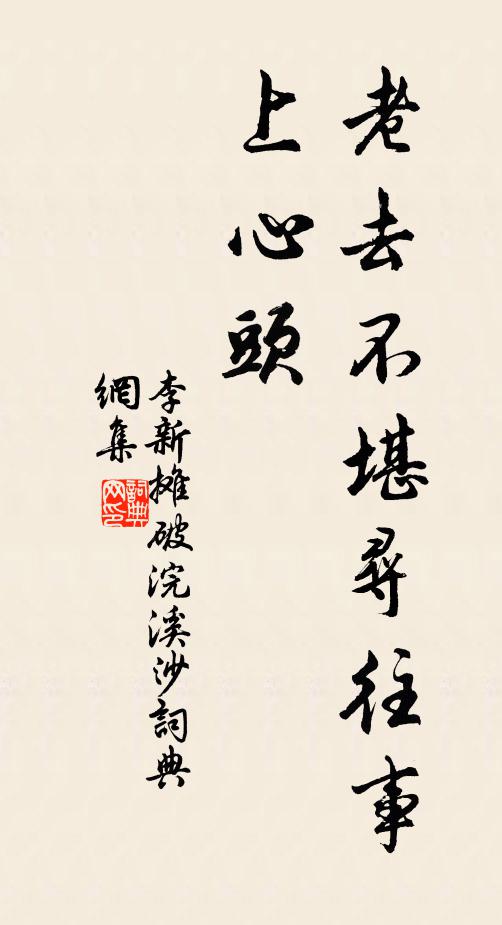 老去不堪尋往事
上心頭
李新攤破浣溪沙詞典
網集
詞典
网印